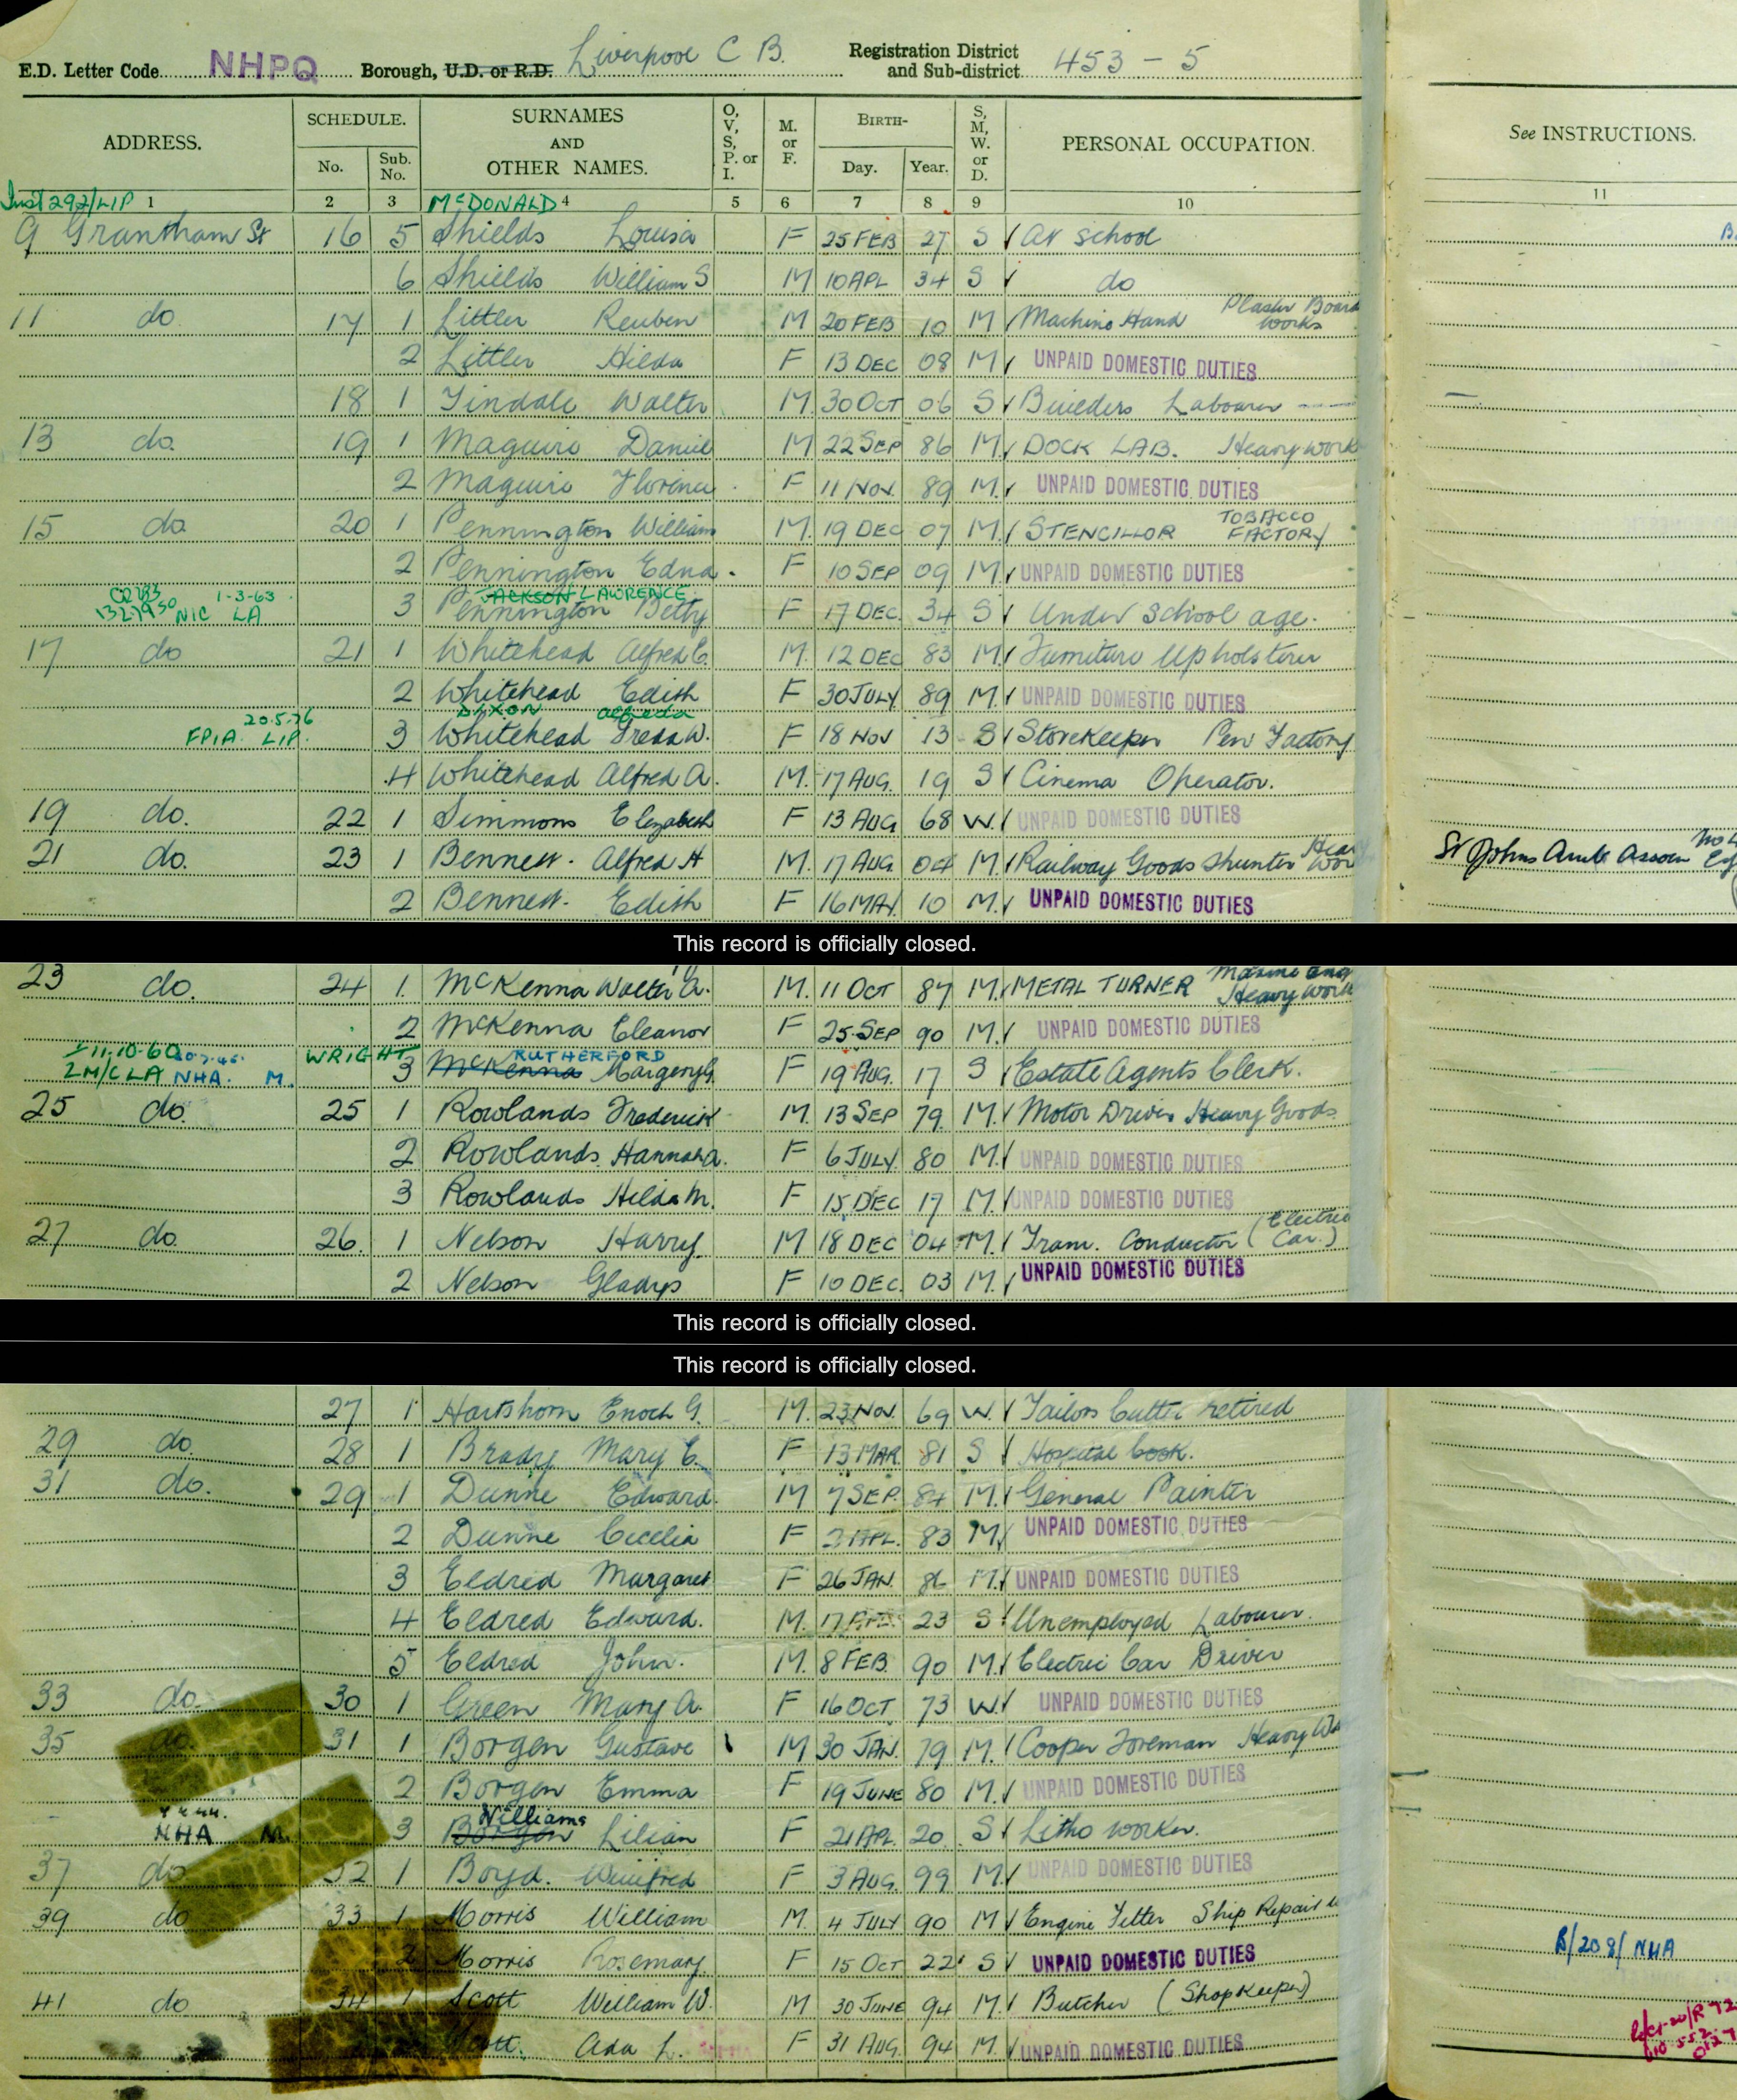 E.D. Letter Code NHPQ Borough, U.D. or R.D. Liverpool C B. Registration District and Sub-district 453 - 5
ADDRESS. SCHEDULE. No. Sub. No. SURNAMES AND OTHER NAMES. O, V, S, P. or I. M. or F. BIRTH- Day. Year. S, M, W. or D. PERSONAL OCCUPATION. See INSTRUCTIONS.
1 2 3 4 5 6 7 8 9 10 11
292/LIP McDONALD
9 Grantham St 16 5 Shields Louisa F 25 FEB 27 S At school
6 Shields William S M 10 APL 34 S do
11 do 17 1 Littler Reuben M 20 FEB 10 M Machine Hand Plaster Board Works
2 Littler Hilda F 13 DEC 08 M UNPAID DOMESTIC DUTIES
18 1 Tindale Walter M 30 OCT 06 S Builders Labourer
13 do. 19 1 Maguire Daniel M 22 SEP 86 M DOCK LAB. Heavy work
2 Maguire Florence F 11 NOV. 89 M. UNPAID DOMESTIC DUTIES
15 do 20 1 Pennington William M. 19 DEC 07 M. STENCILLOR TOBACCO FACTORY
2 Pennington Edna F 10 SEP 09 M. UNPAID DOMESTIC DUTIES
CR283 1-3-63 JACKSON LAWRENCE
NIC LA 3 Pennington Betty F 17 DEC. 34 S Under School age.
17 do 21 1 Whitehead Alfred C. M. 12 DEC 83 M. Furniture Upholsterer
2 Whitehead Edith F 30 JULY 89 M. UNPAID DOMESTIC DUTIES
20.5.76 DIXON
FPIA. LIP. 3 Whitehead Freda W. F 18 NOV 13 S Storekeeper Pen Factory
4 Whitehead Alfred A. M. 17 AUG. 19 S Cinema Operator.
19 do. 22 1 Simmons Elizabeth F 13 AUG 68 W. UNPAID DOMESTIC DUTIES
21 do. 23 1 Bennett. Alfred H M. 17 AUG. 04 M. Railway Goods Shunter St Johns Amb. Assocn
2 Bennett. Edith F 16 MAY. 10 M. UNPAID DOMESTIC DUTIES
This record is officially closed.
23 do. 24 1. McKenna Walter A. M. 11 OCT 87 M. METAL TURNER Marine Eng Heavy Work
2 McKenna Eleanor F 25 SEP 90 M. UNPAID DOMESTIC DUTIES
11-10-60 WRIGHT RUTHERFORD
LA NHA. M. 3 McKenna Margery G. F 19 AUG. 17 S Estate Agents Clerk.
25 do. 25 1 Rowlands Frederick M. 13 SEP 79. M. Motor Driver Heavy Goods
2 Rowlands. Hannah A. F 6 JULY. 80 M. UNPAID DOMESTIC DUTIES
3 Rowlands Hilda M. F 15 DEC 17 M. UNPAID DOMESTIC DUTIES
27 do. 26. 1 Nelson Harry. M 18 DEC 04 M. Tram. Conductor (Electric Car.)
2 Nelson Gladys F 10 DEC. 03 M. UNPAID DOMESTIC DUTIES
This record is officially closed.
This record is officially closed.
27 1 Hartshorn Enoch G. M. 23 NOV. 69 W. Tailors Cutter retired
29 do. 28 1 Brady Mary E. F 13 MAR. 81 S Hospital Cook.
31 do. 29 1 Dunne Edward. M 7 SEP. 84 M. General Painter
2 Dunne Cecelia F 2 APL. 83 M. UNPAID DOMESTIC DUTIES
3 Eldred Margaret F 26 JAN. 86 M. UNPAID DOMESTIC DUTIES
4 Eldred Edward. M. 17 FEB. 23 S Unemployed Labourer.
5 Eldred John. M. 8 FEB. 90 M. Electric Car Driver
33 do. 30 1 Green Mary A. F 16 OCT 73 W. UNPAID DOMESTIC DUTIES
35 do. 31 1 Borgen Gustave M 30 JAN. 79 M. Cooper Foreman Heavy
2 Borgen Emma F 19 JUNE 80 M. UNPAID DOMESTIC DUTIES
Williams
NHA M. 3 Borgen Lilian F 21 APL. 20 S Litho worker.
37 do 32 1 Boyd. Winifred F 3 AUG. 99 M. UNPAID DOMESTIC DUTIES
39 do 33 1 Morris William M. 4 JULY 90 M Engine Fitter Ship Repair
2 Morris Rosemary F 15 OCT 22 S UNPAID DOMESTIC DUTIES B/208/NHA
41 do 34 1 Scott William W. M 30 JUNE 94 M. Butcher (Shopkeeper)
Scott. Ada L. F 31 AUG. 94 M. UNPAID DOMESTIC DUTIES